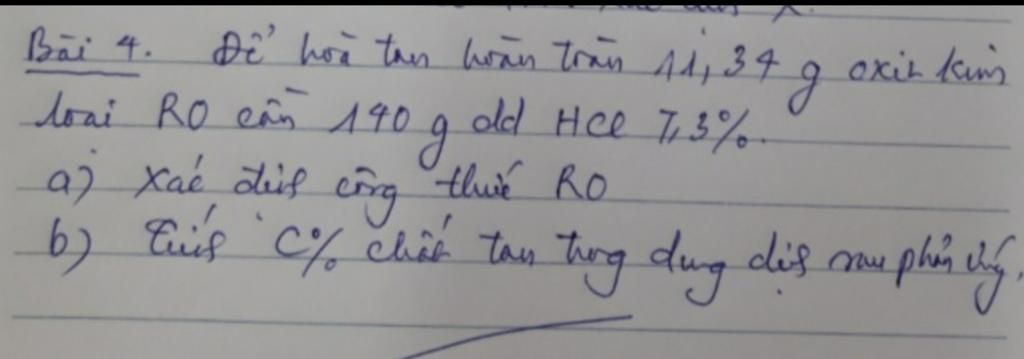 Bài 4. Để hoà tan hoàn toàn 11,34 g oxit kim
loại RO cần 140 g dd HCl 7,3%.
a) Xác định công thức RO
b) Tính C% chất tan trong dung dịch sau phản ứng.